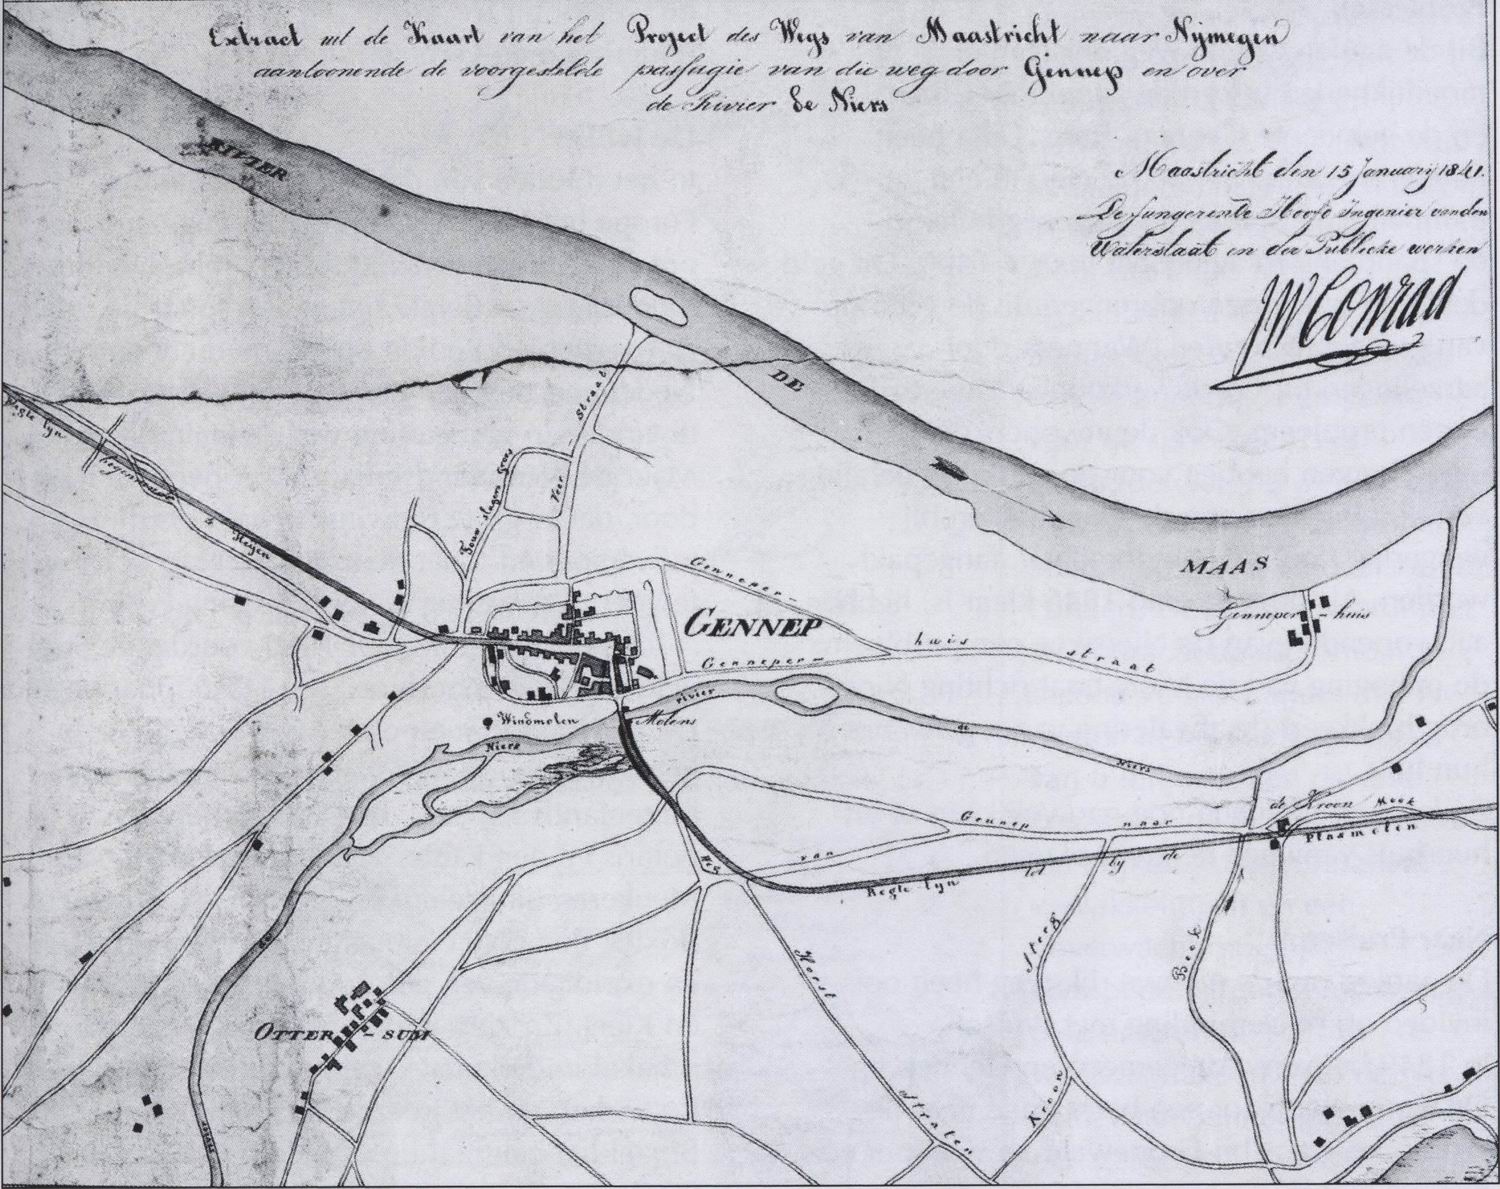 Extract uit de Kaart van het Project des Wegs van Maastricht naar Nijmegen
aantoonende de voorgestelde passagie van die weg door Gennep en over
de Rivier de Niers
Maastricht den 15 January 1841.
De fungerende Hoofd Ingenier van den
Waterstaat en der Publieke werken
JW Conrad
RIVIER
DE
MAAS
Straat
Veer
Touwslagers
Regte lyn
tegenwoordi
te Heyen
GENNEP
Genneper-
huis
straat
Genneper-
Genneper-huis
rivier
de
Niers
Windmolen
Molens
Niers
de Kroon
Mook
Plasmolen
Gennep naar
van
Weg
Regte lyn tot by de
Horst
Straten
Steeg
Kroon
Beek
de
OTTER-SUM